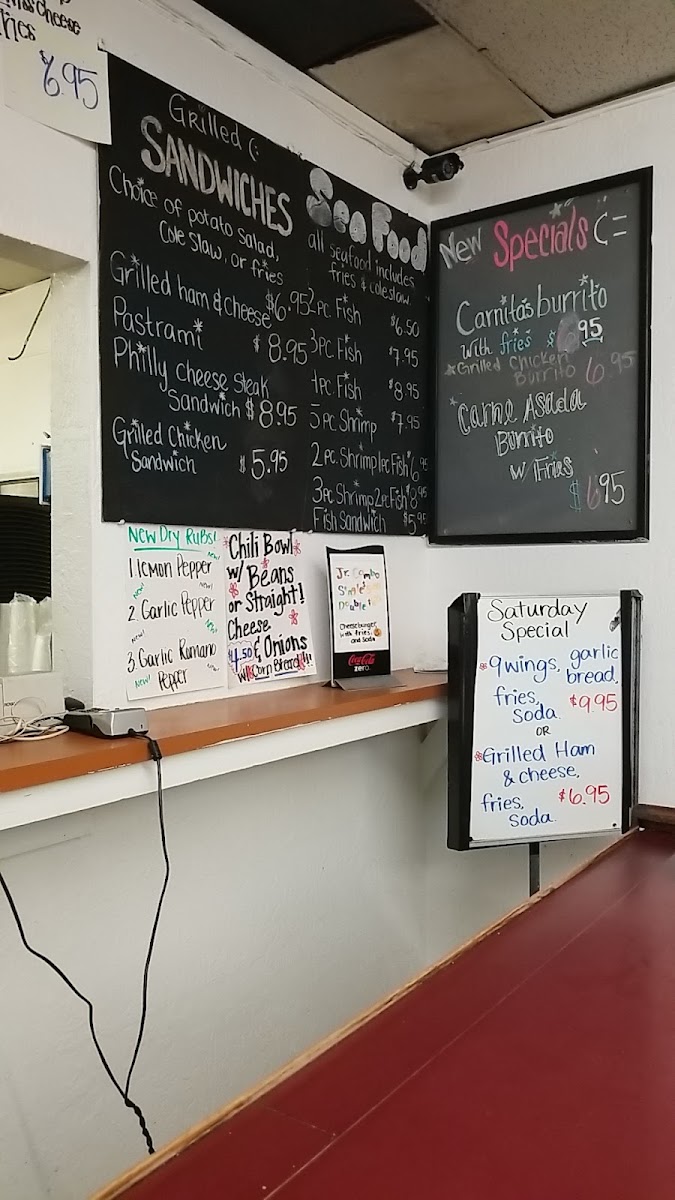 Cheese
$6.95
Grilled (:
SANDWICHES
Choice of potato salad,
Cole slaw, or fries
Grilled ham & cheese
$6.95
Pastrami
$8.95
Philly cheese steak
Sandwich $8.95
Grilled Chicken
Sandwich $5.95
Sea Food
all seafood includes
fries & coleslaw
2pc Fish $6.50
3pc Fish $7.95
4pc Fish $8.95
5pc Shrimp $7.95
2pc. Shrimp 1pc Fish $6.95
3pc Shrimp 2pc Fish $8.95
Fish Sandwich $5.95
New Specials (=
Carnitas burrito
with fries $6.95
Grilled Chicken
Burrito 6.95
Carne Asada
Burrito
w/ Fries
$6.95
New Dry Rubs!
1 lemon Pepper New!
2. Garlic Pepper New!
New!
3. Garlic Romano
Pepper
New!
Chili Bowl
w/ Beans
or Straight!
Cheese
$4.50 & Onions
w/ Corn Bread!!!
Jr. Combo
Single
Double
Cheeseburger,
with fries,
and soda
Coca-Cola
zero
Saturday
Special
9 wings, garlic
bread,
fries,
soda. $9.95
OR
Grilled Ham
& cheese,
fries, $6.95
soda.